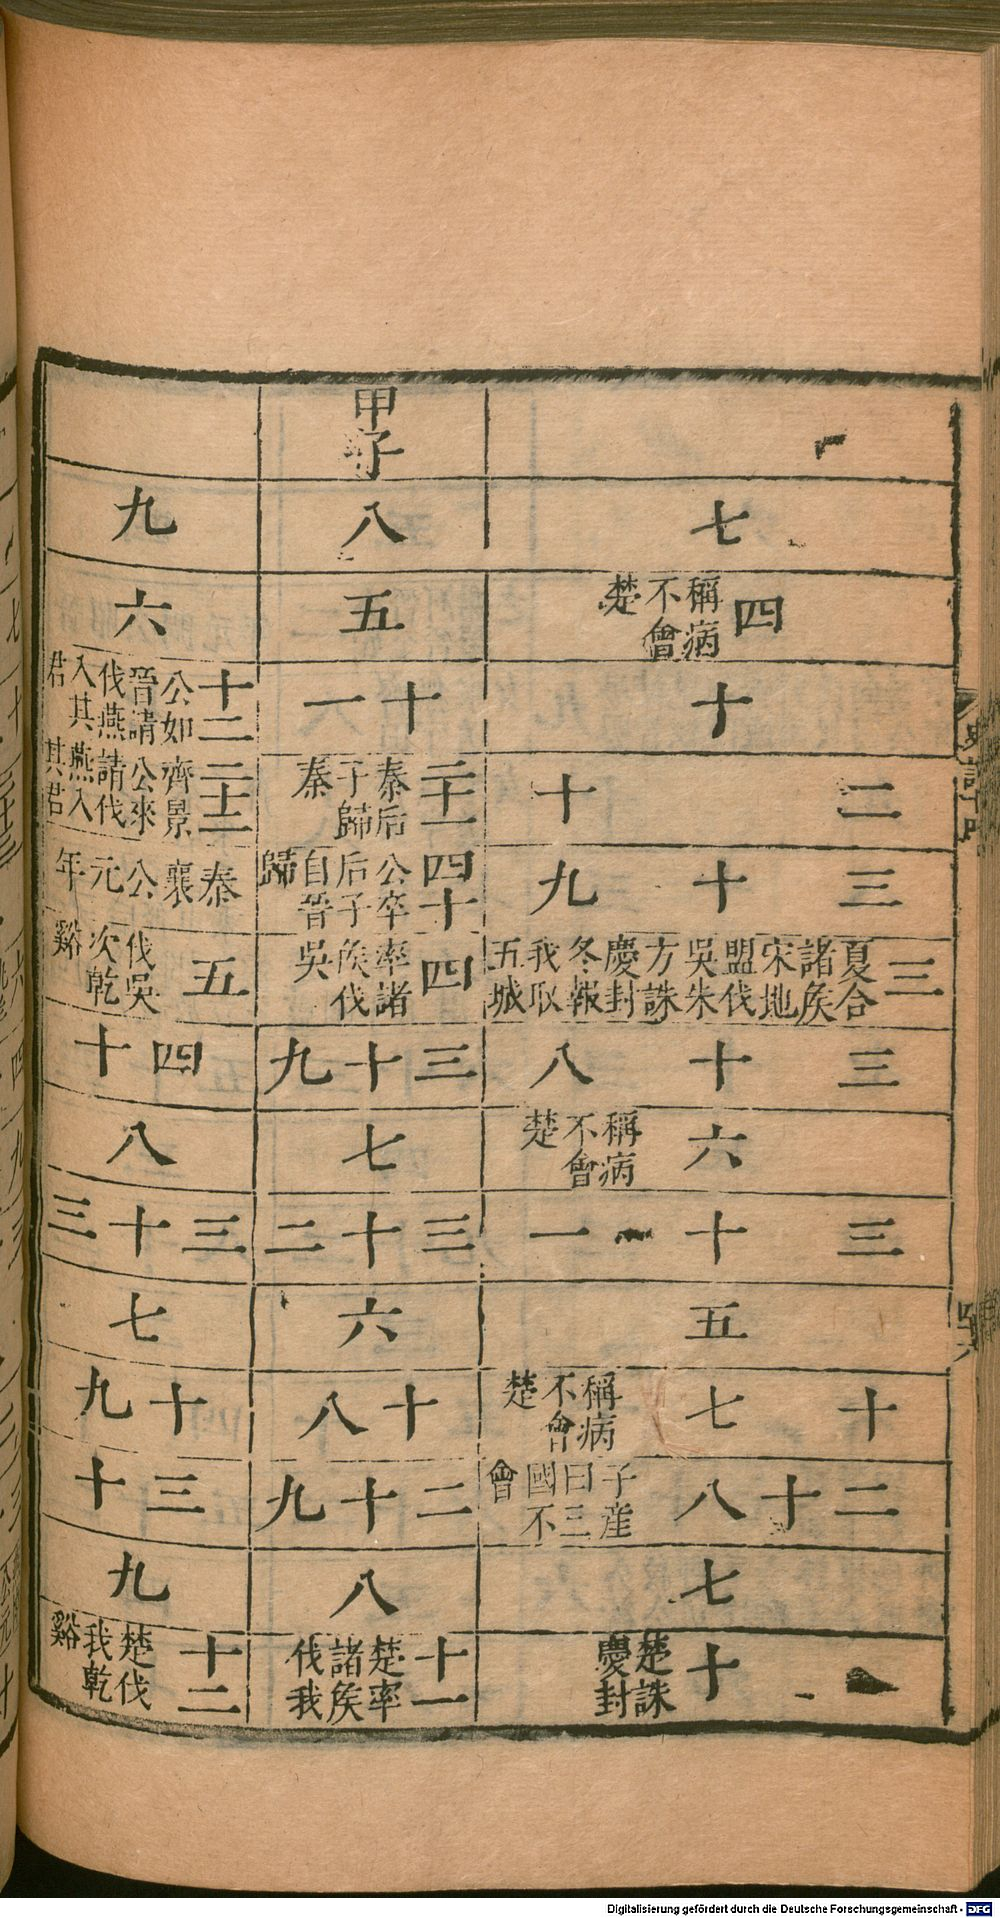 史記十四
七
四 稱病不會楚
十
二十
三十九
三 夏合諸矦宋地盟伐吳朱方誅慶封冬報我取五城
三十八
六 稱病不會楚
三十一
五
十七 稱病不會楚
二十八 子產曰三國不會
七
十 楚誅慶封
甲子
八
五
十一
二十一 秦后子歸秦
四十 公卒后子自晉歸
四 率諸矦伐吳
三十九
七
三十二
六
十八
二十九
八
十一 楚率諸矦伐我
九
六
十二 公如晉請伐燕入其君
二十二 齊景公來請伐燕入其君
秦襄公元年
五 伐吳次乾谿
四十
八
三十三
七
十九
三十
九
十二 楚伐我乾谿
Digitalisierung gefördert durch die Deutsche Forschungsgemeinschaft - DFG